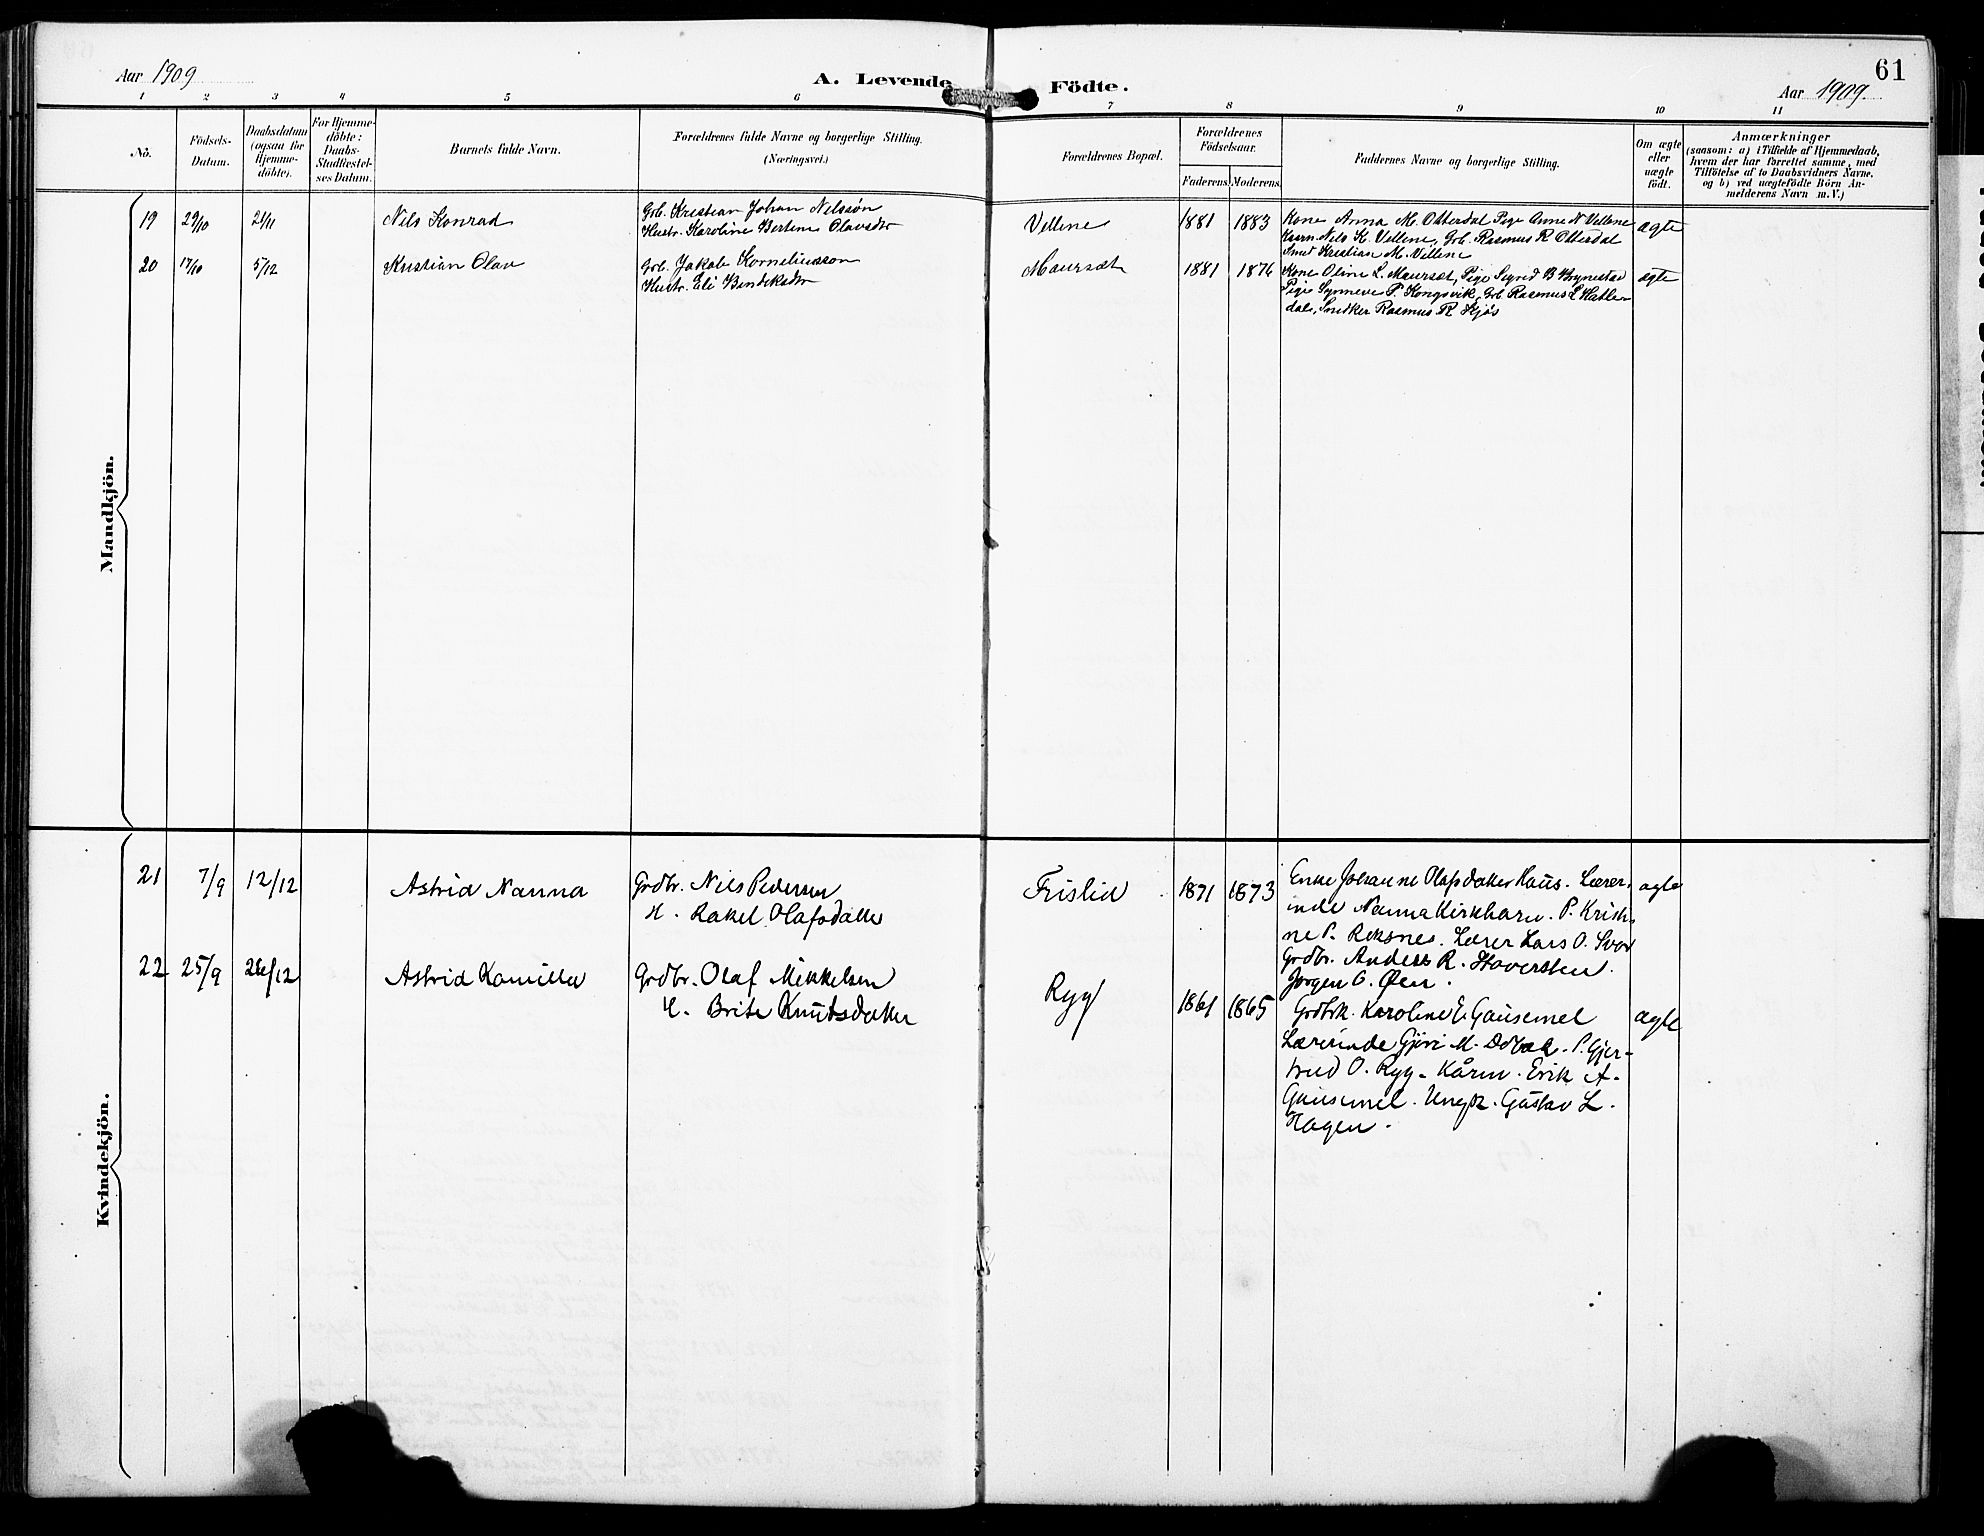 61
Aar 1909
A. Levende
Födte.
Aar 1909.
1 2 3 4 5 6 7 8 9 10 11
No.
Födsels-
Datum.
Daabsdatum
(ogsaa for
Hjemme-
döbte).
For Hjemme-
döbte:
Daabs-
Stadfæstel-
ses Datum.
Barnets fulde Navn.
Forældrenes fulde Navne og borgerlige Stilling.
(Næringsvei.)
Forældrenes Bopæl.
Forældrenes
Födselsaar.
Faderens. Moderens.
Faddernes Navne og borgerlige Stilling.
Om ægte
eller
uægte
født.
Anmærkninger
(saasom: a) i Tilfælde af Hjemmedaab,
hvem der har forrettet samme, med
Tilföielse af to Daabsvidners Navne.
og b) ved uægtefödte Börn An-
melderens Navn m.V.)
Mandkjön.
19 29/10 21/11 Nils Konrad
Grb. Kristian Johan Nilssøn
Hustr. Karoline Bertine Olavsdtr
Vellene 1881 1883
Kone Anna M. Otterdal Pige Anne N Vellene
Kaarm. Nils K. Vellene, Grb. Rasmus R Otterdal
Kristian M. Vellene
ægte
20 17/10 5/12 Kristian Olav
Grb. Jakob Korneliusson
Hustr. Eli Bendiksdtr
Maurset 1881 1876
Kone Oline L. Maurset, Pige Sigrid B Brynestad
Pige Synneve P. Kongsvik, Grb Rasmus L Hatle-
dal, Snedker Rasmus R Kjøs
ægte
Kvindekjön.
21 7/9 12/12 Astrid Nanna
Grdbr. Nils Pedersen
H. Rakel Olafsdatter
Frislid 1871 1873
Enke Johanne Olafsdatter Haus. Lærer-
inde Nanna Kirkhorn. P. Kristi-
ne P. Reksnes. Lærer Lars O. Svor
Grdbr. Anders R. Haversten.
Jørgen O. Øen.
ægte
22 25/9 26/12 Astrid Kamilla
Grdbr. Olaf Mikkelsen
H. Brite Knutsdatter
Ryg 1861 1865
Grdbrk. Karoline E. Gausemel
Lærerinde Gjøri M. P. Gjer-
trud O. Ryg. Kårm. Erik A.
Gausemel. Ungk. Gustav L.
Hagen.
ægte